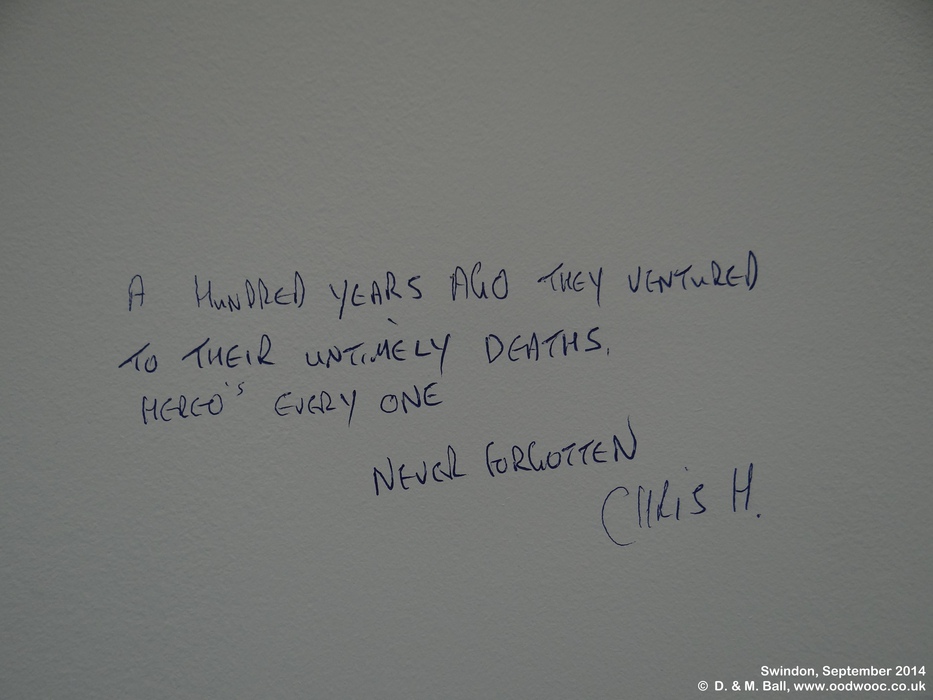 A HUNDRED YEARS AGO THEY VENTURED
TO THEIR UNTIMELY DEATHS.
HEREO'S EVERY ONE
NEVER FORGOTTEN
CHRIS H.
Swindon, September 2014
© D. & M. Ball, www.oodwooc.co.uk